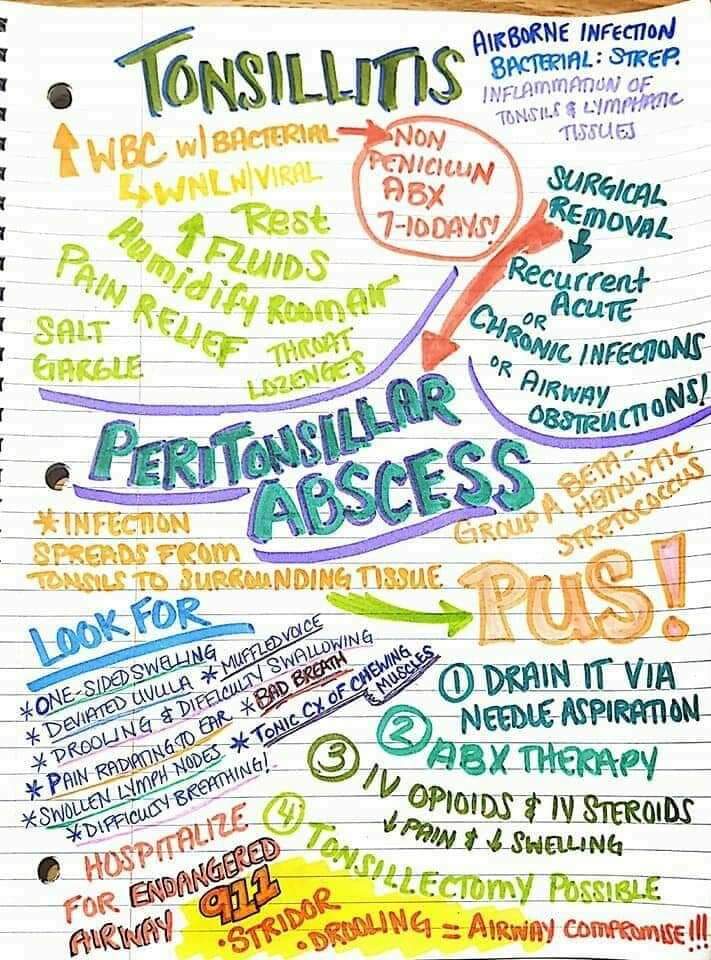 TONSILLITIS
AIRBORNE INFECTION
BACTERIAL: STREP.
INFLAMMATION OF
TONSILS & LYMPHATIC
TISSUES
↑ WBC w/ BACTERIAL →
↳ WNL W/ VIRAL
NON
PENICILLIN
ABX
7-10 DAYS!
Rest
↑ FLUIDS
Humidify ROOM AIR
PAIN RELIEF
SALT
GARGLE
THROAT
LOZENGES
SURGICAL
REMOVAL
↓
Recurrent
ACUTE
OR
CHRONIC INFECTIONS
OR AIRWAY
OBSTRUCTIONS!
PERITONSILLAR
ABSCESS
GROUP A BETA-
HEMOLYTIC
STREPTOCOCCUS
* INFECTION
SPREADS FROM
TONSILS TO SURROUNDING TISSUE
PUS!
LOOK FOR
* ONE-SIDED SWELLING
* DEVIATED UVULA * MUFFLED VOICE
* DROOLING & DIFFICULTY SWALLOWING
* PAIN RADIATING TO EAR * BAD BREATH
* SWOLLEN LYMPH NODES * TONIC CX OF CHEWING
MUSCLES
* DIFFICULTY BREATHING!
① DRAIN IT VIA
NEEDLE ASPIRATION
② ABX THERAPY
③ IV OPIOIDS & IV STEROIDS
↓ PAIN & ↓ SWELLING
④ TONSILLECTOMY POSSIBLE
HOSPITALIZE
FOR ENDANGERED
AIRWAY
911
• STRIDOR
• DROOLING = AIRWAY COMPROMISE!!!